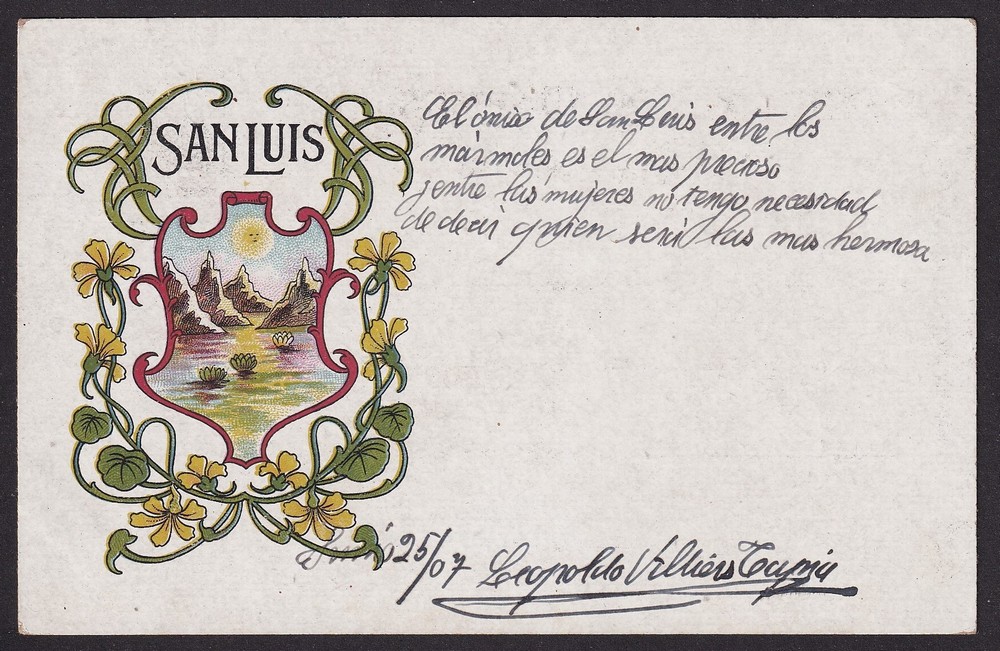 SAN LUIS
El ónix de San Luis entre los
mármoles es el mas precioso
y entre las mujeres no tengo necesidad
de decir quien será las mas hermosa
Junio 25/07 Leopoldo Villiers